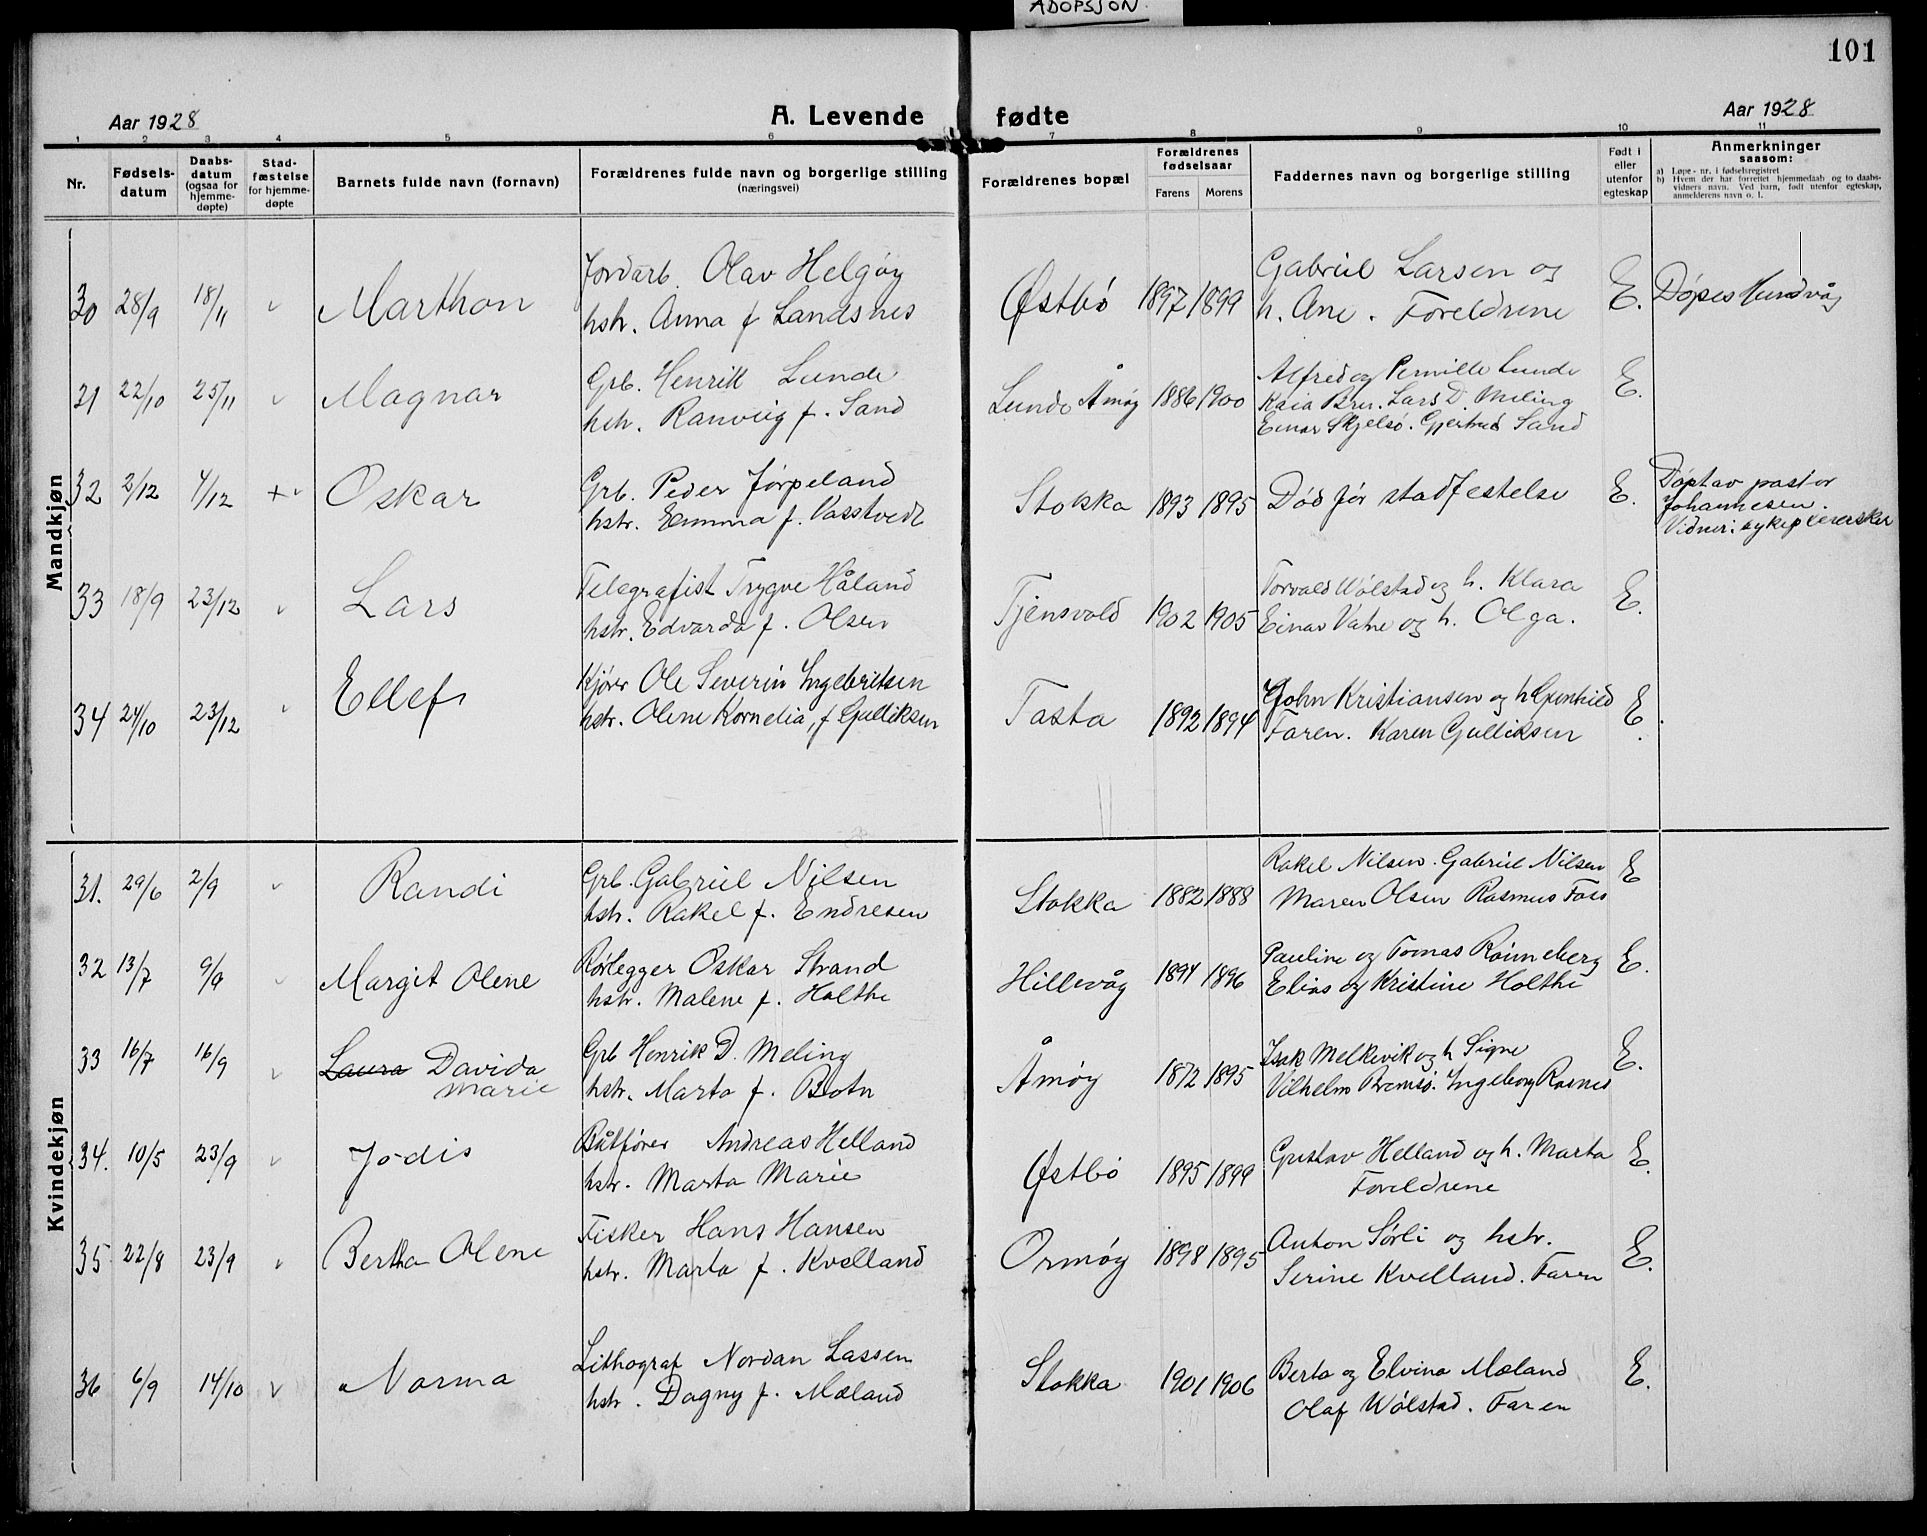 ADOPSJON.
101
Aar 1928
A. Levende fødte
Aar 1928
1 2 3 4 5 6 7 8 9 10 11
Nr.
Fødsels-
datum
Daabs-
datum
(ogsaa for
hjemme-
døpte)
Stad-
fæstelse
for hjemme-
døpte
Barnets fulde navn (fornavn)
Forældrenes fulde navn og borgerlige stilling
(næringsvei)
Forældrenes bopæl
Forældrenes
fødselsaar
Farens Morens
Faddernes navn og borgerlige stilling
Født i
eller
utenfor
egteskap
Anmerkninger
saasom:
a) Løpe-nr. i fødselsregistret
b) Hvem der har forrettet hjemmedaab og to daabs-
vidners navn. Ved barn, født utenfor egteskap,
anmelderens navn o. l.
Mandkjøn
30 28/9 18/11 Marthon
Jordarb. Olav Helgøy
hstr. Anna f Landsnes
Østbö 1897 1899
Gabriel Larsen og
h. Ane. Foreldrene
E. Döpes Hundvåg
31 22/10 25/11 Magnar
Grb. Henrik Lunde
hstr. Ranveig f. Sand
Lunde Åmøy 1886 1900
Alfred og Pernille Lunde
Kaia Bru. Lars D. Meling
Einar Skjelsö. Gjertrud Sand
E.
32 2/12 4/12 + Oskar
Grb. Peder Jörpeland
hstr. Emma f. Vasstvedt
Stokka 1893 1895
Död för stadfestelse
E.
Döpt av pastor
Johannesen.
Vidner: sykepleiersker
33 18/9 23/12 Lars
Telegrafist Trygve Håland
hstr. Edvarda f. Olsen
Tjensvold 1902 1905
Torvald Wölstad og h. Klara
Einar Vatne og h. Olga.
E.
34 24/10 23/12 Ellef
Kjörer Ole Severin Ingebritsen
hstr. Olene Kornelia, f Gulliksen
Tasta 1892 1894
John Kristiansen og h Gunhild
Faren. Karen Gulliksen
E.
Kvindekjøn
31. 29/6 2/9 Randi
Grb. Gabriel Nilsen
hstr. Rakel f. Endresen
Stokka 1882 1888
Rakel Nilsen. Gabriel Nilsen
Maren Olsen Rasmus Foss
E
32 13/7 9/9 Margit Olene
Rörlegger Oskar Strand
hstr. Malene f. Holthe
Hillevåg 1894 1896
Pauline og Tomas Rönneberg
Elias og Kristine Holthe
E.
33 16/7 16/9 Laura Davida
Marie
Grb Henrik D. Meling
hstr. Marta f. Botn
Åmøy 1872 1895
Isak Melkevik og h Signe
Vilhelm Bremsö. Ingeborg Rosnes
E.
34. 10/5 23/9 Jodis
Båtförer Andreas Helland
hstr. Marta Marie
Østbö 1895 1899
Gustav Helland og h. Marta
Foreldrene
E.
35 22/8 23/9 Bertha Olene
Fisker Hans Hansen
hstr. Marta f. Kvelland
Ormøy 1898 1895
Anton Sörli og hstr.
Serine Kvelland. Faren
E.
36 6/9 14/10 Norma
Lithograf Nordan Lassen
hstr. Dagny f. Mæland
Stokka 1901 1906
Berta og Elvina Mæland
Olaf Wölstad. Faren
E.